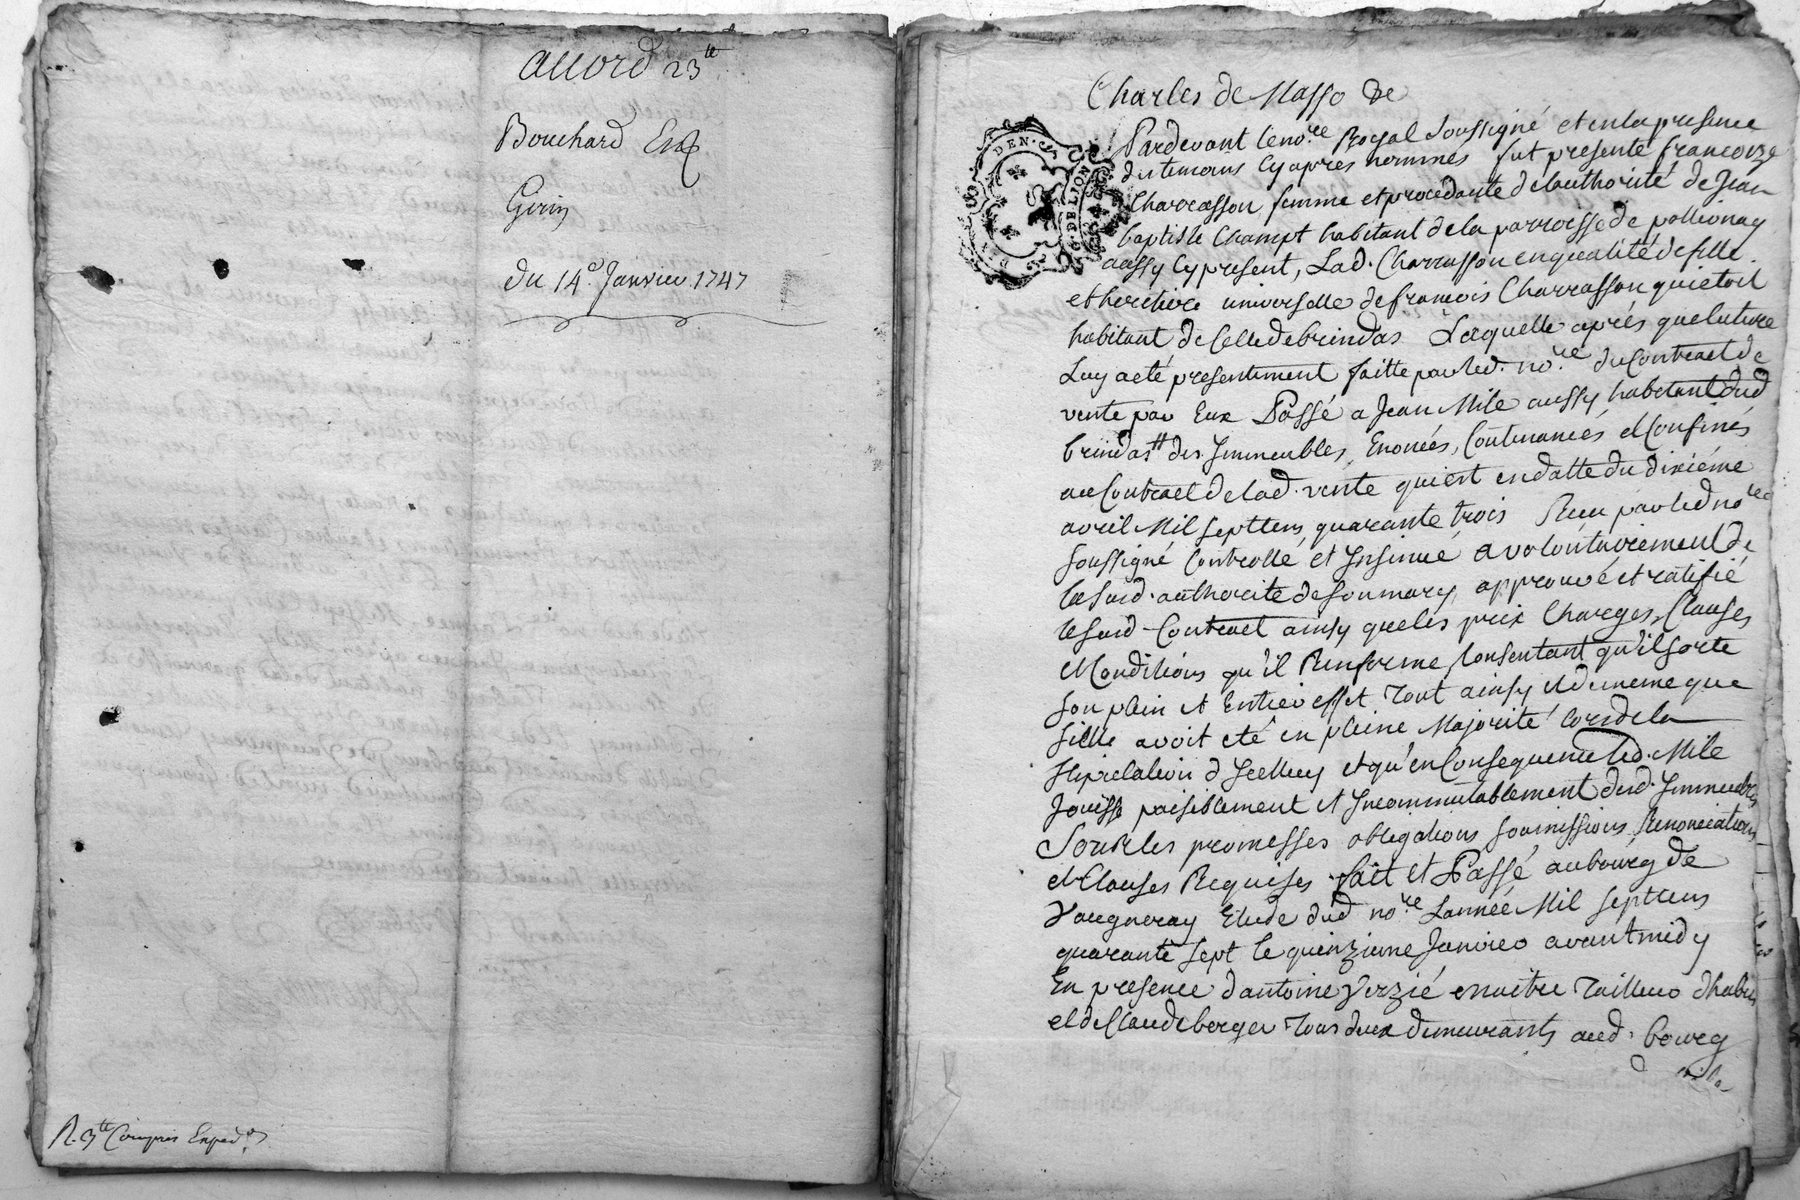 Accord 23tt
Bouchard Et
Girin
du 14e. Janvier 1747
R. 3tt Compris Exped.on
Charles de Masso De
DEN.
G. DE LION
Pardevant le nore. Royal Soussigné et en la presence
des temoins Cy apres nommés fut presente francoize
Charrasson femme et procedante de lauthorité de Jean
baptiste Champt habitant de la parroisse de pollionay
aussy Cy present, Lad. Charrasson en qualité de fille
et heritiere universelle de francois Charrasson qui etoit
habitant de Celle de brindas Laquelle aprés que lecture
Luy a eté presentement faitte par led. nore. du Contract de
vente par Eux Passé a Jean Mile aussy habitant dud
brindas des Immeubles, Enoncés, Contenancés et Confinés
au Contract de lad. vente qui est en datte du dixiéme
avril Mil septtens quarante trois Receu par led nore
soussigné Controllé et Insinué a volontairement de
la susd. authorité de son mary, approuvé et ratifié
le susd. Contract ainsy que les prix Charges, Clauses
et Conditions qu'il Renferme, Consentant qu'il sorte
son plein et Entier effet tout ainsy et de meme que
si elle avoit eté en pleine Majorité lors de la
stipulation d'Icelluy et qu'en Consequence led. Mile
Jouisse paisiblement et Incommutablement desd. Immeubles
Sous les promesses obligations soumissions Renonciations
et Clauses Requises. fait et Passé au bourg de
Vaugneray Etude dud nore. Lannée Mil septtens
quarante sept le quinzieme Janvier avant midy
En presence d'antoine Verzié maitre Tailleur d'habits
et de Claude berger tous deux demeurants aud. bourg